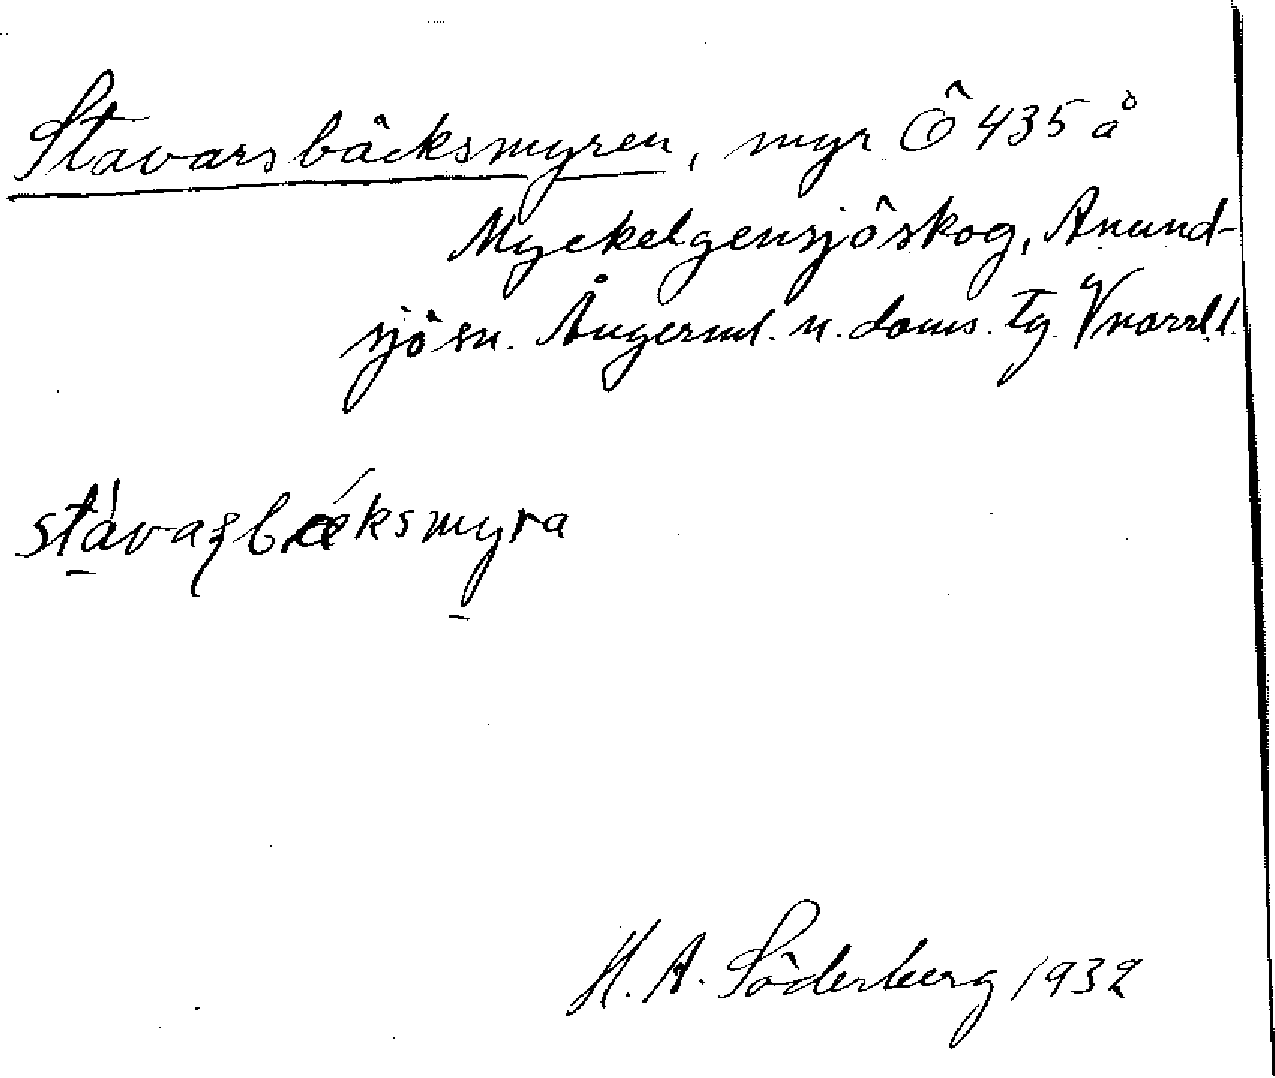 Stavarsbäcksmyren, myr Ö 435 å
Myckelgensjöskog, Anund-
sjö sn. Ångerml. n. doms. Tg. Vnorrl l.
stávaʂbǽksmyra
H. A. Söderberg 1932